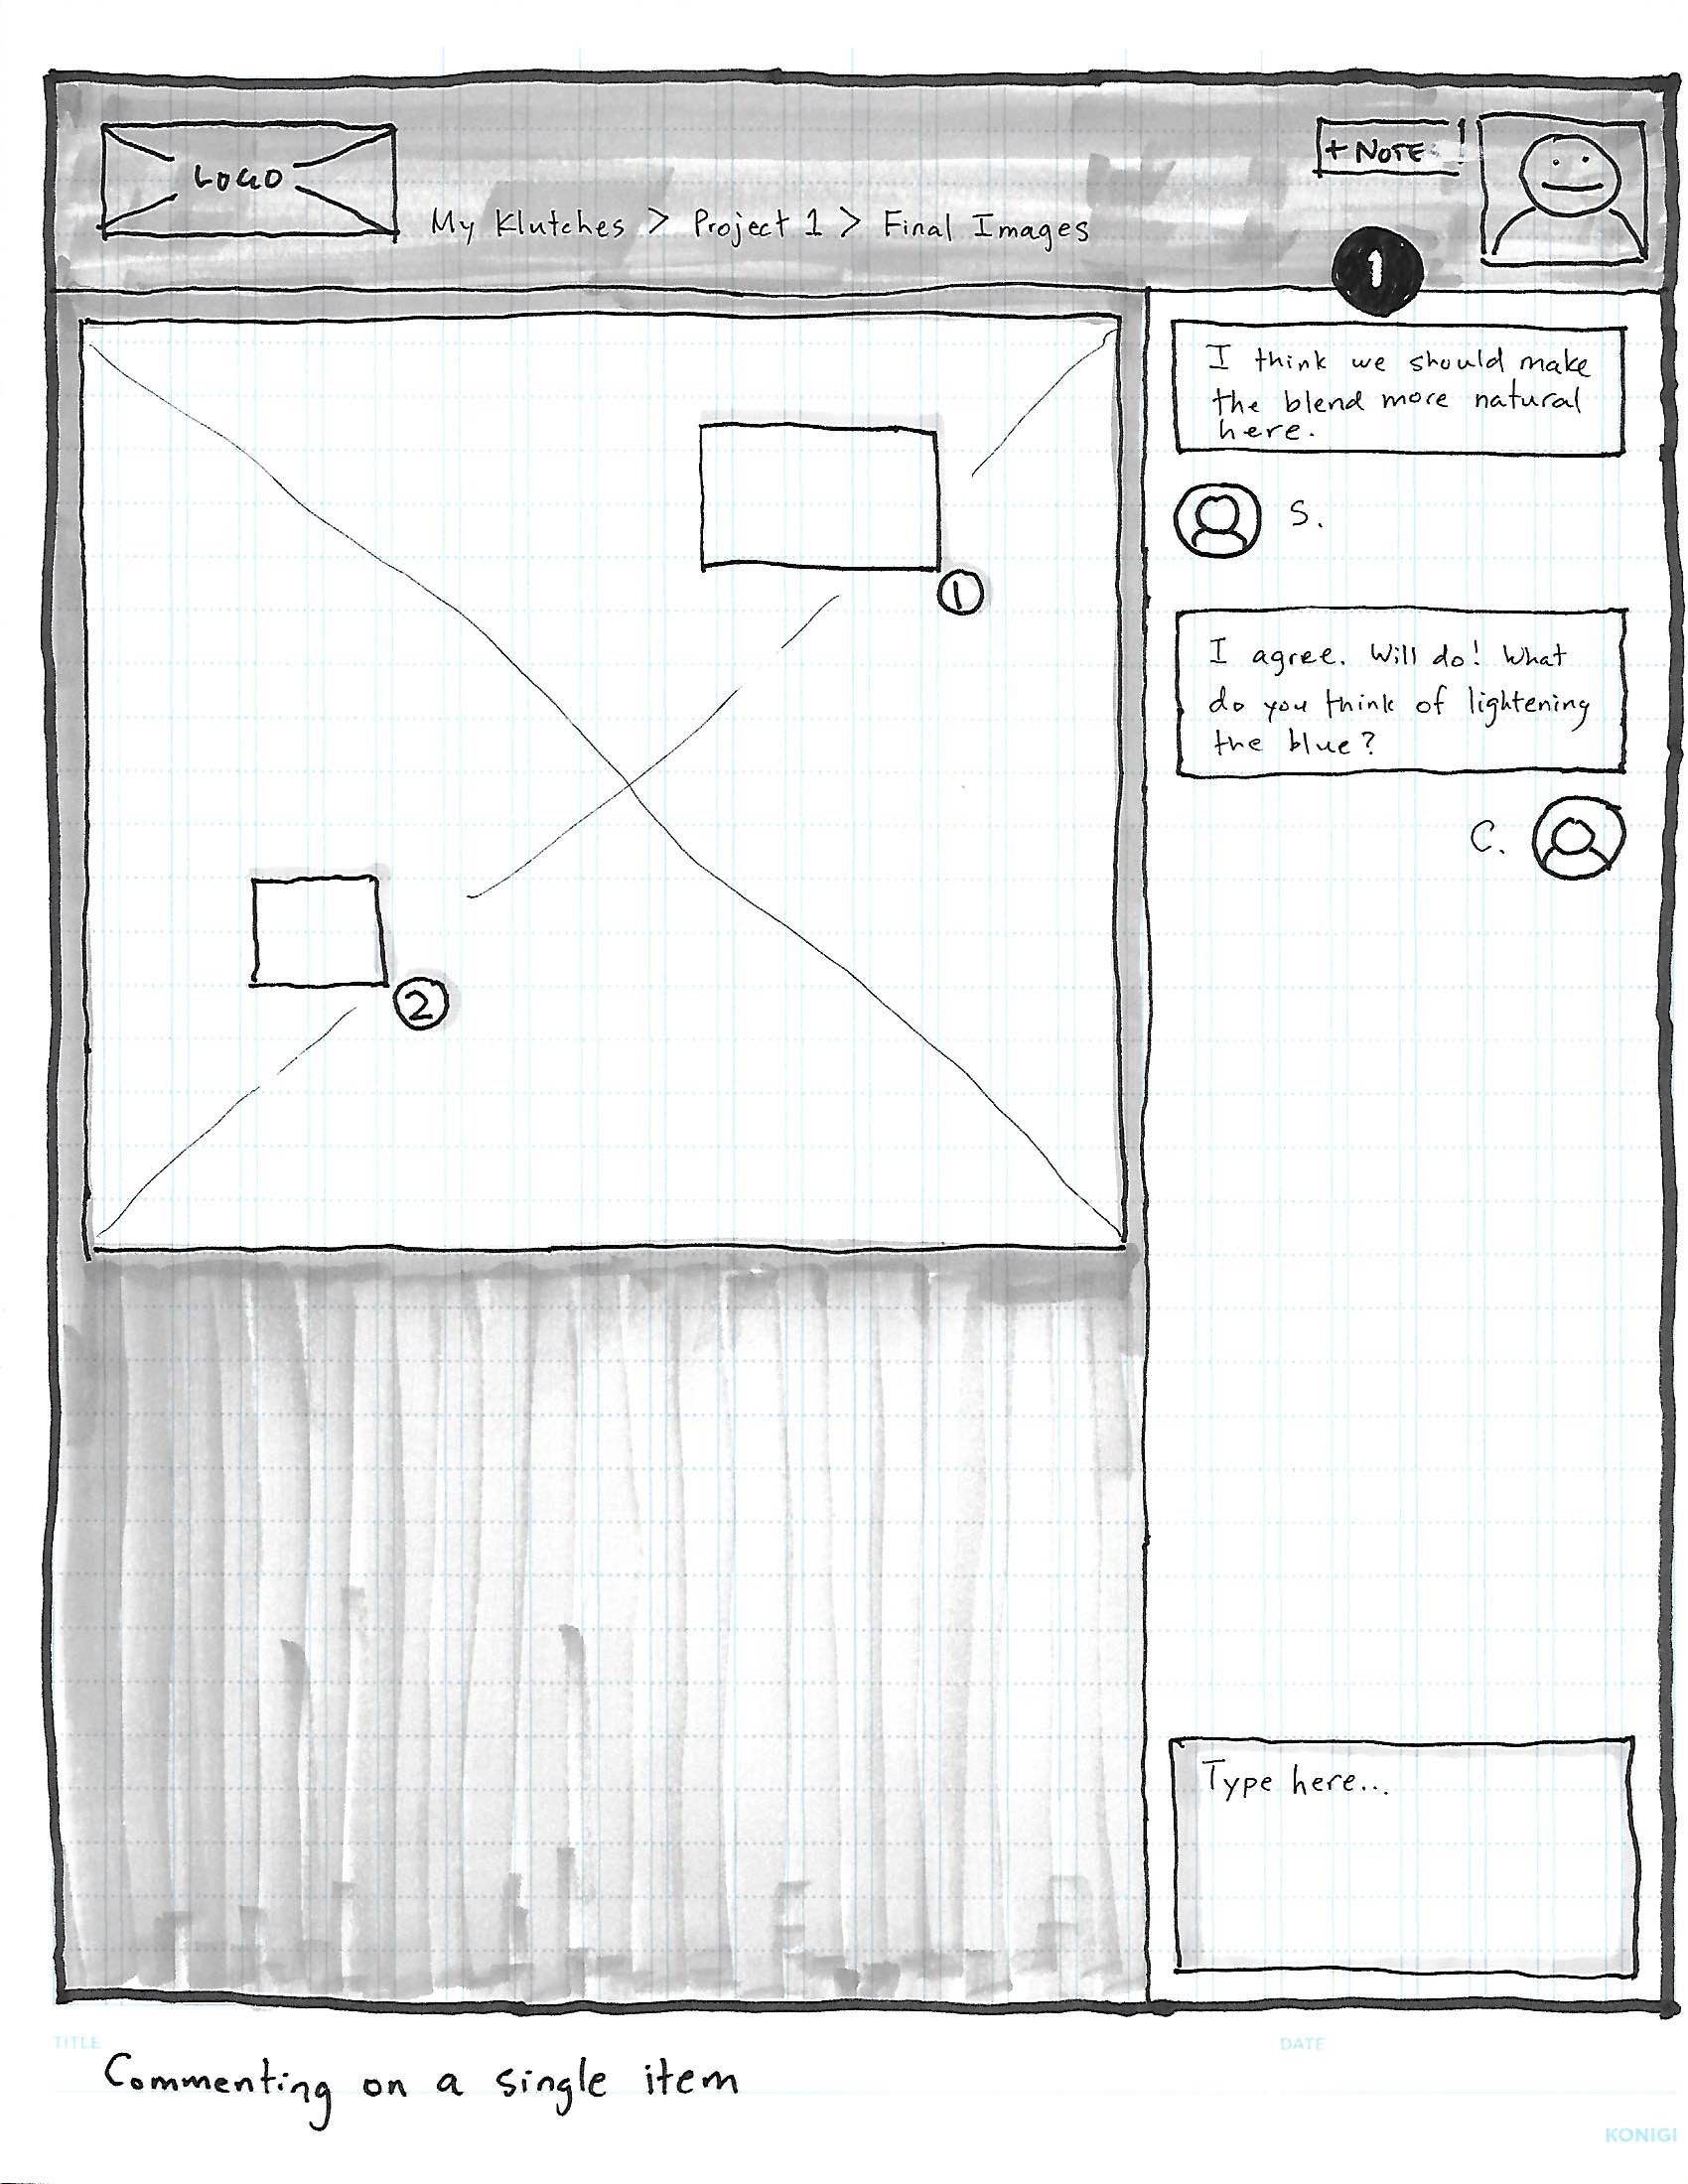 LOGO
+ NOTE
My Klutches > Project 1 > Final Images
1
I think we should make
the blend more natural
here.
S.
1
I agree. Will do! What
do you think of lightening
the blue?
C.
2
Type here...
TITLE
DATE
Commenting on a single item
KONIGI